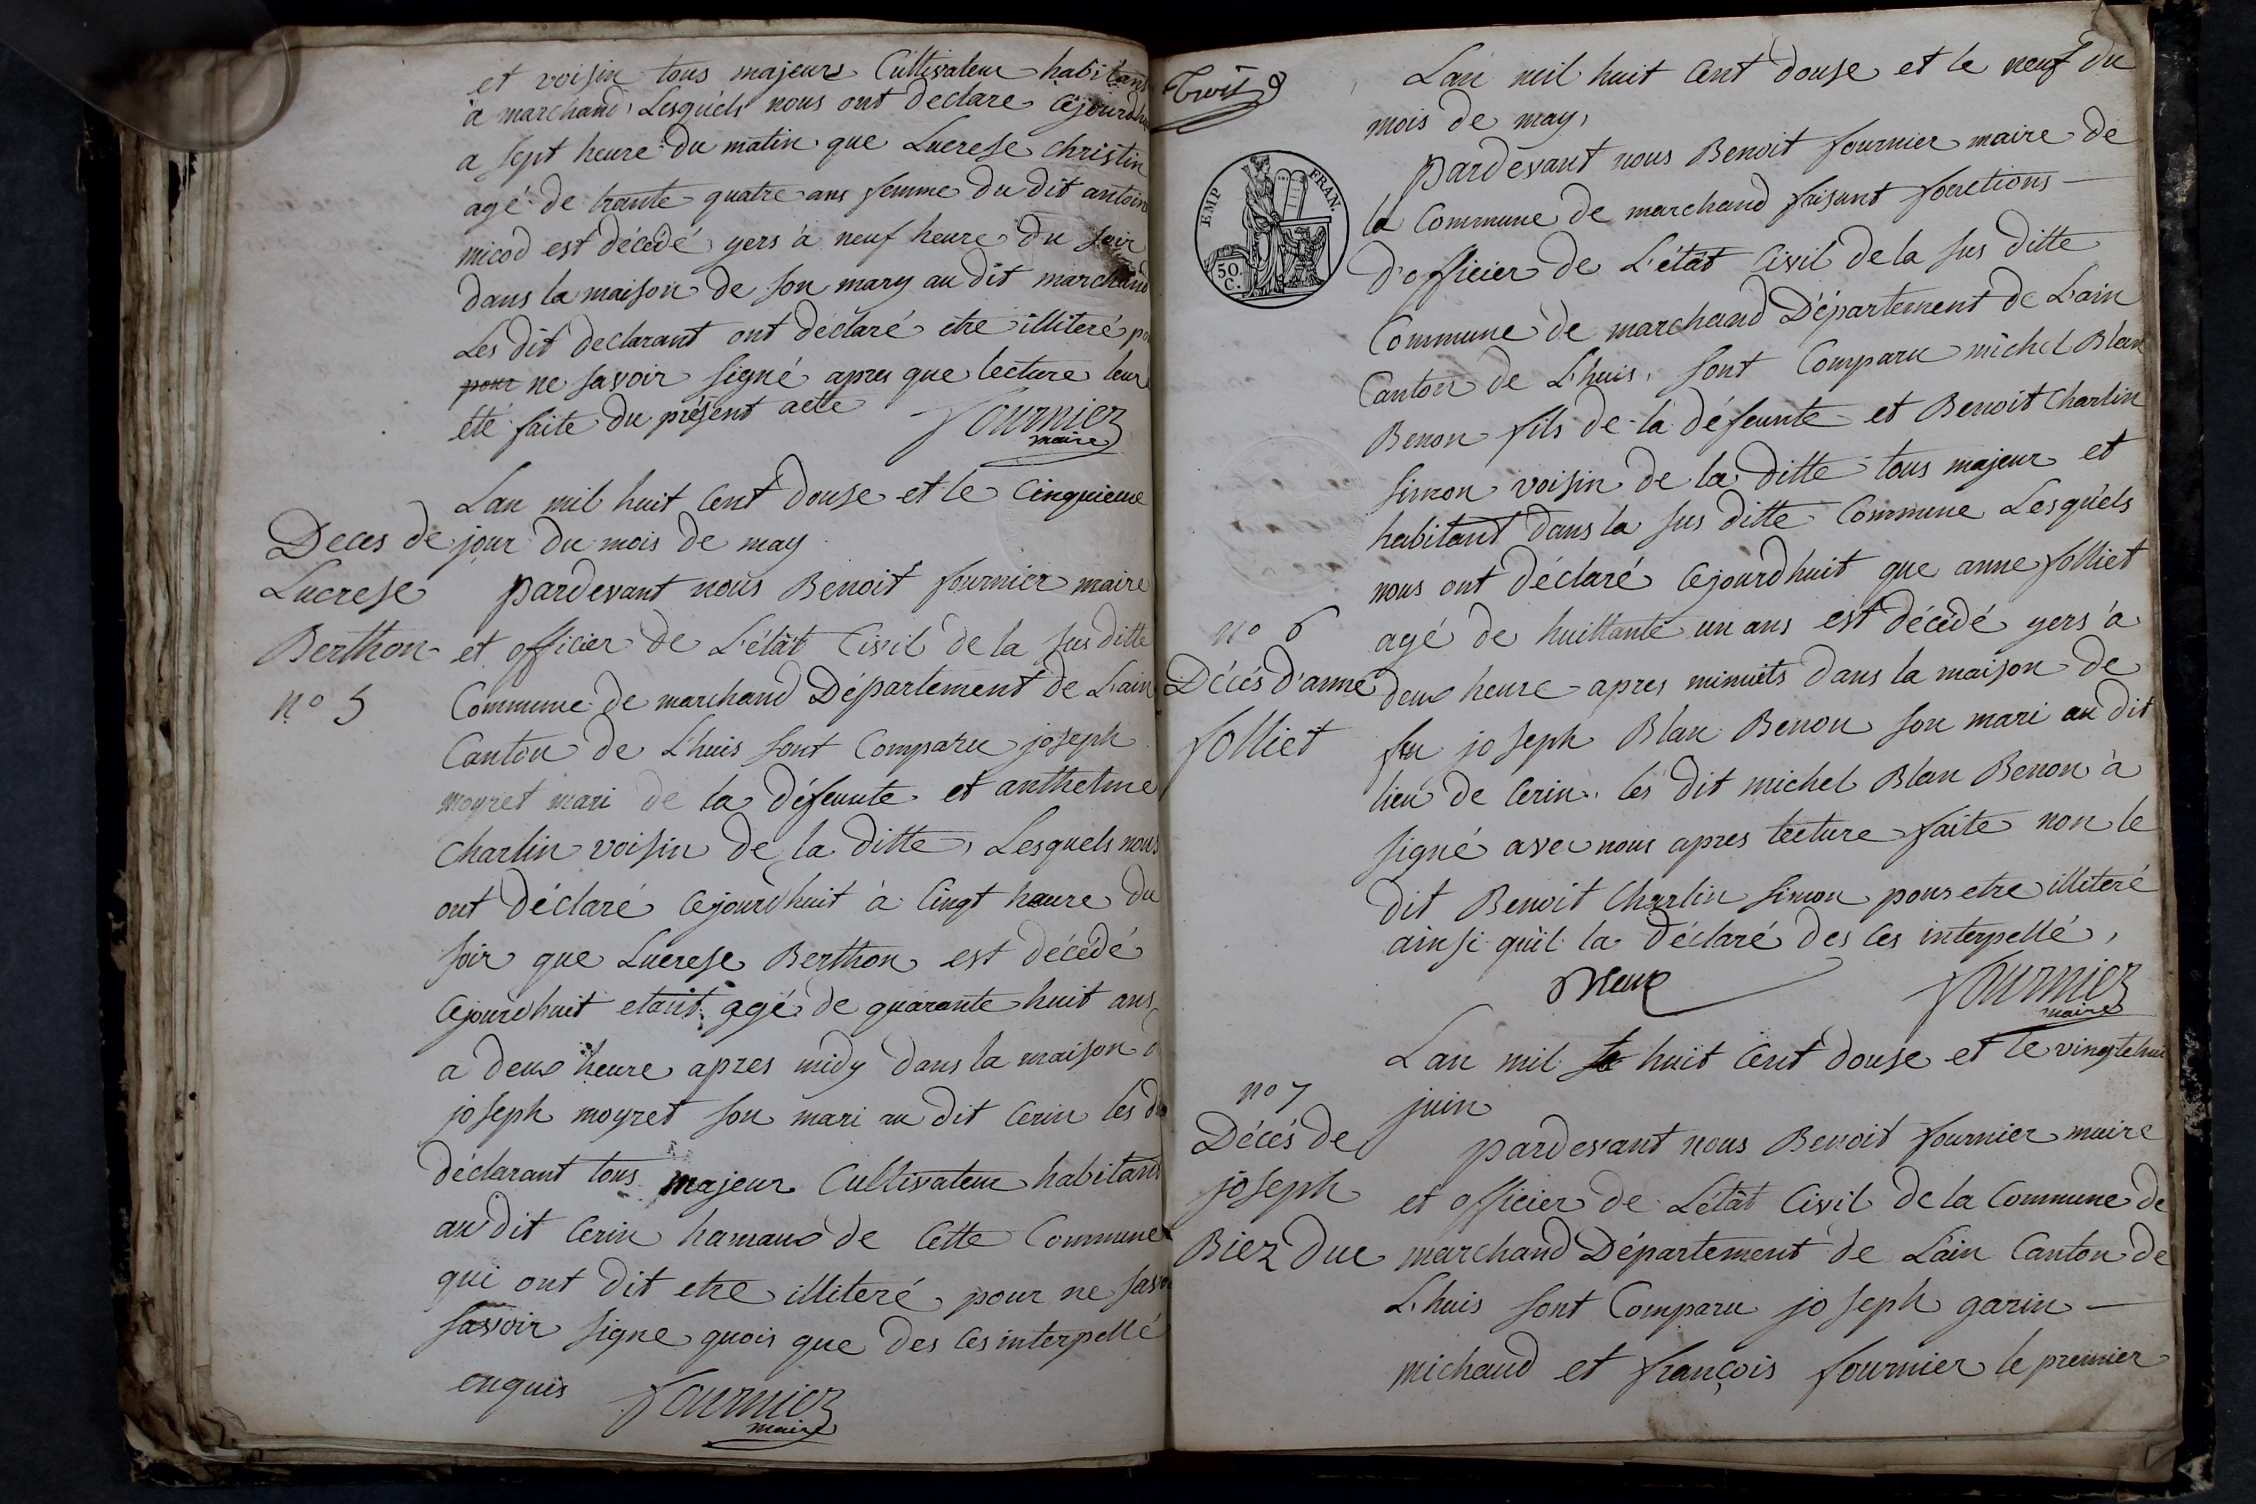 et voisin tous majeurs Cultivateur habitans
a marchand, Lesquels nous ont declare cejourdhui
a sept heure du matin que Lucrese christin
agé de trante quatre ans femme du dit antoine
micod est décedé yers à neuf heure du soir
dans la maison de son mary au dit marchand
Les dit declarant ont déclaré etre illiteré
pour ne savoir signé apres que lecture leur
eté faite du présent acte
fournier
maire
Deces de
Lucrese
Berthon
nº 5
Lan mil huit Cent douse et le Cinquieme
jour du mois de may
pardevant nous Benoit fournier maire
et officier de L'état Civil de la sus ditte
Commune de marchand Département de Lain
Canton de Lhuis sont Comparu joseph
moyret mari de la défeunte et anthelme
Charlin voisin de la ditte, Lesquels nous
ont déclaré Cejourdhuit à Cinqt heure du
soir que Lucrese Berthon est décedé
Cejourdhuit etant agé de quarante huit ans
a deux heure apres midy dans la maison
joseph moyret son mari au dit Cerin les
déclarant tous majeur Cultivateur habitant
au dit Cerin hamaux de Cette Commune
qui ont dit etre illiteré pour ne
savoir signe quois que des Ces interpellé
enquis
fournier
maire
Trois
EMP FRAN.
50 C.
Lan mil huit Cent douse et le neuf du
mois de may,
pardevant nous Benoit fournier maire de
la Commune de marchand faisant fonctions
d'officier de L'état Civil de la sus ditte
Commune de marchand Département de Lain
Canton de Lhuis, sont Comparu michel Blan
Benon fils de la défeunte et Benoit Charlin
simon voisin de la ditte tous majeur et
habitant dans la sus ditte Commune Lesquels
nous ont déclaré Cejourdhuit que anne folliet
nº 6
Décés d'anne
folliet
agé de huittante un ans est décedé yers à
deux heure apres minuits dans la maison de
feu joseph Blan Benon son mari au dit
lieu de Cerin. les dit michel Blan Benon à
signé avec nous apres lecture faite non le
dit Benoit Charlin simon pour etre illiteré
ainsi quil la déclaré des Ces interpellé,
fournier
maire
nº 7
Décés de
joseph
Biez Duc
Lan mil huit Cent douse et le
juin
pardevant nous Benoit fournier maire
et officier de L'état Civil de la Commune de
marchand Département de Lain Canton de
Lhuis sont Comparu joseph garin
michaud et françois fournier le premier